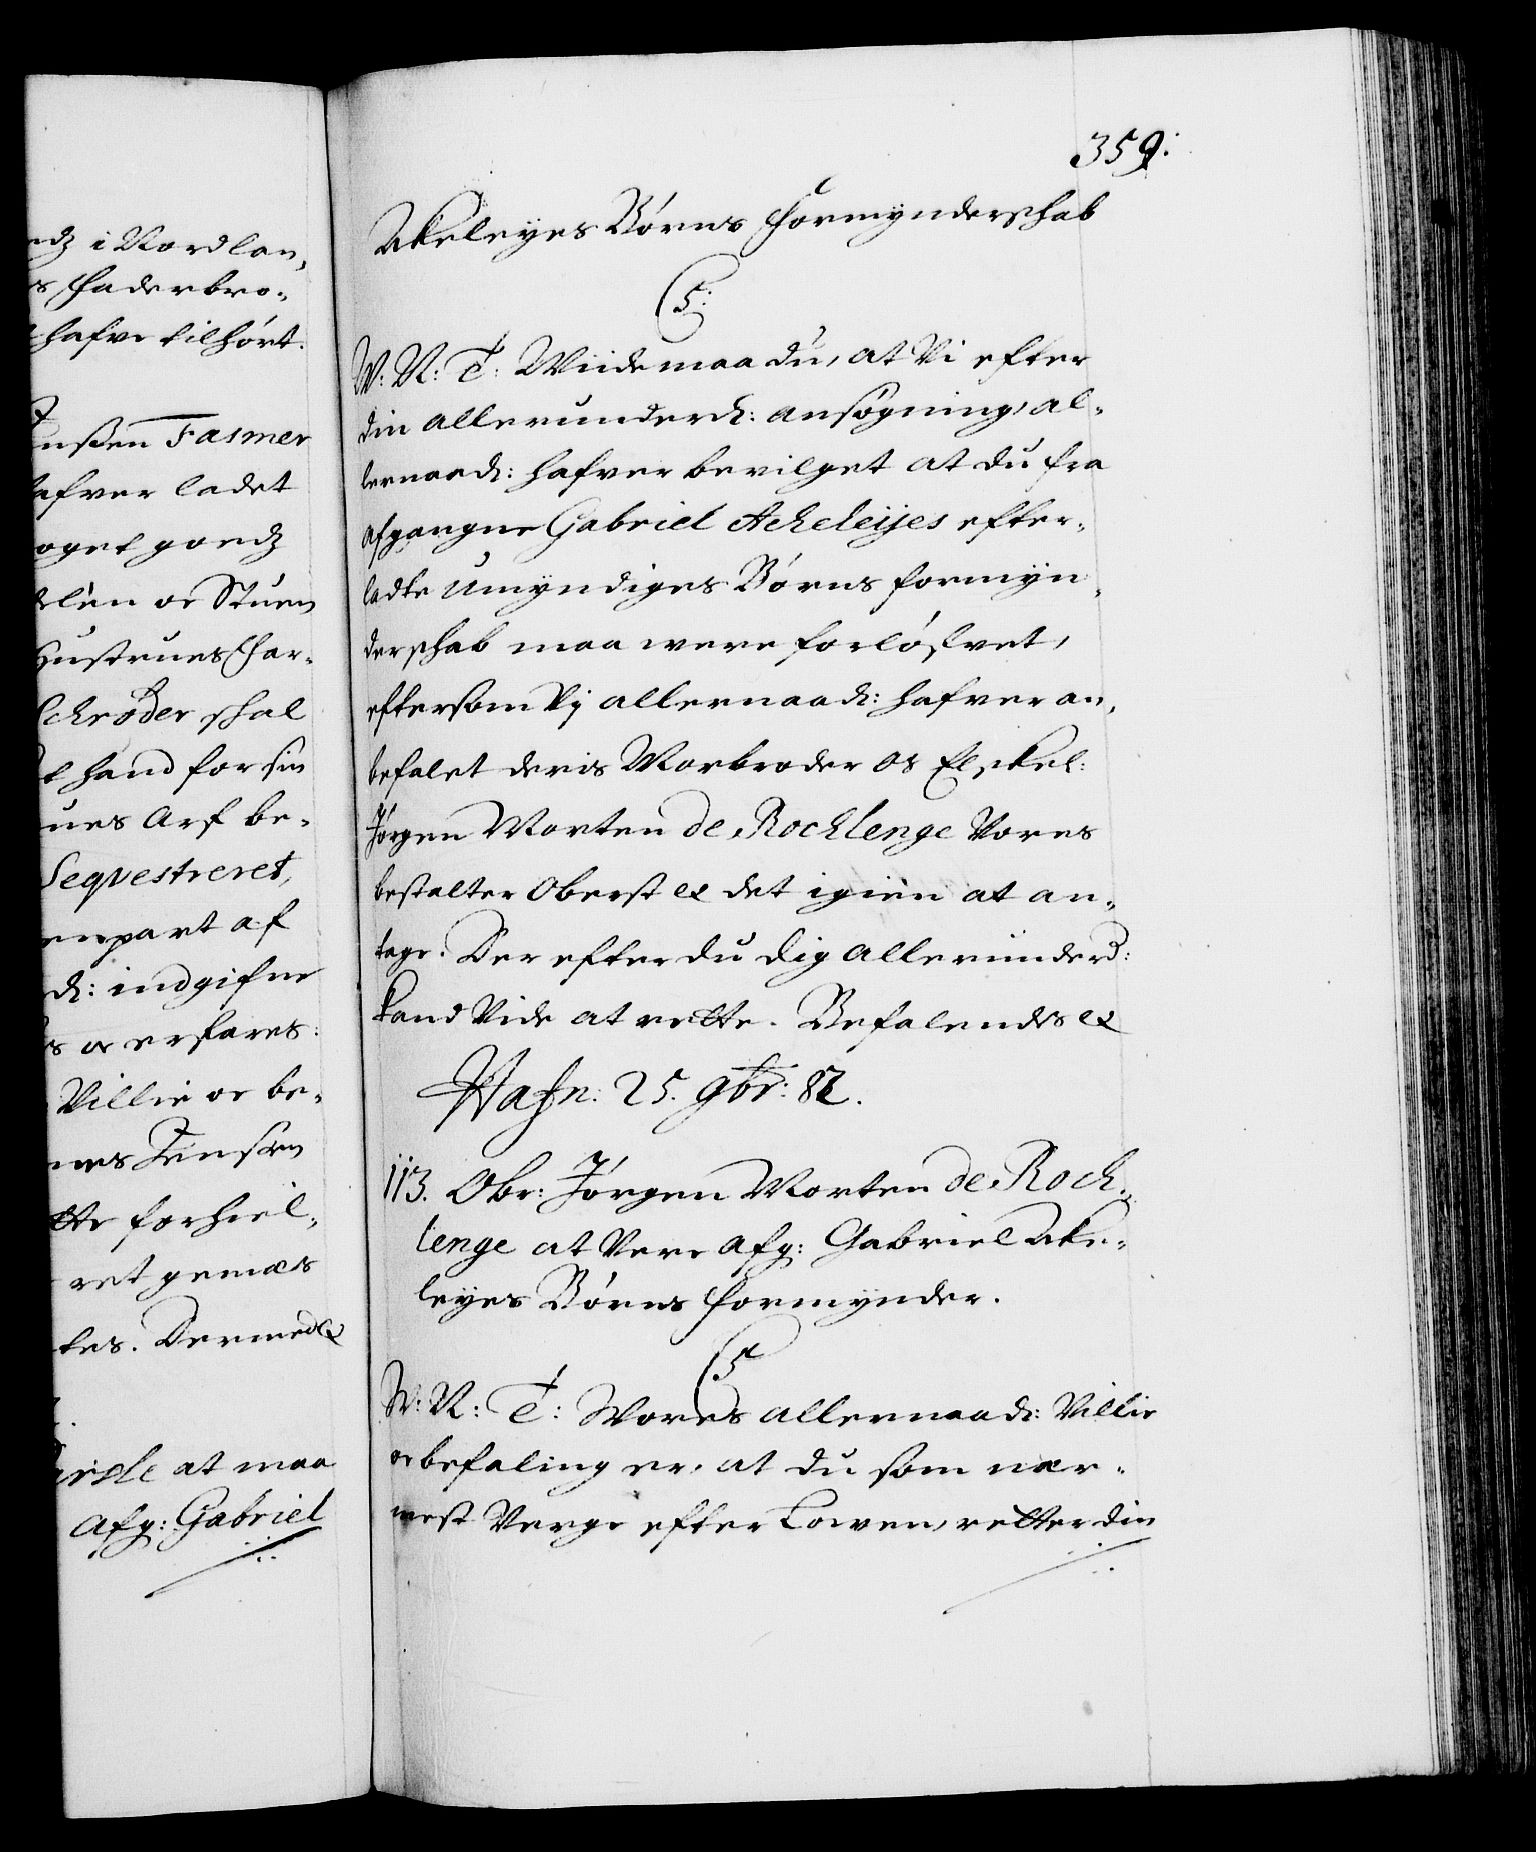 359:
Akeleyes Börns Formynderskab
C 5:
W: N: T: Wiide maa du, at Vi efter
din allerunderd: ansögning, al-
lernaad: hafver bevilget at du fra
afgangne Gabriel Acheleijes efter-
ladte umyndiges Börns formyn-
derskab maa were forlösvet,
eftersom Vj allernaad: hafver an-
befalet deris Morbroder os Elskel:
Jörgen Morten de Rochlenge Vores
bestalter Oberst &c det igien at an-
tage. Der efter du dig allerunderd:
kand Vide at rette. Befalendes &c
Hafn: 25. 9br: 82.
113. Obr: Jörgen Morten de Roch-
lenge at Vere afg: Gabriel Ake-
leyes Börns Formynder.
C 5
W: N: T: Wores allernaad: Villie
oc befaling er, at du som nær-
mest Verge efter Lowen, retter din
edz i Nordlan-
s Faderbro-
hafve tilhört.
ensen Fasmer
hafver ladet
noget goedz
oc Stuen
Hustrues Far-
Schröder skal
t hand for sin
ues Arf be-
Seqvestreret,
enpart af
d: indgifne
s oc erfares:
Villie oc be-
nes Jensen
ette forhiel-
ret gemæs
tes. Dermed &c
at maa
afg: Gabriel